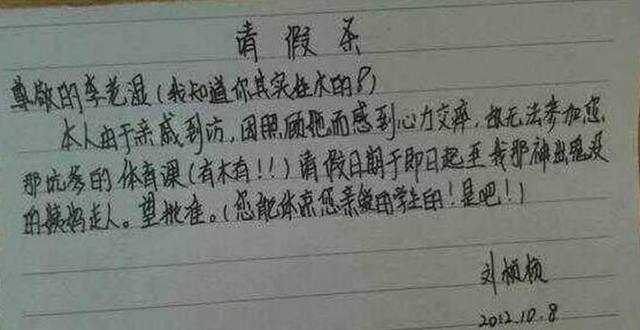 请假条
尊敬的李老湿(我知道你其实在木的!)
本人由于亲戚到访,因照顾她而感到心力交瘁,故无法参加您
那坑爹的体育课(有木有!!)请假日期于即日起至我那神出鬼没
的姨妈走人。望批准。(您能体谅您亲爱的学生的!是吧!)
刘桢桢
2012.10.8